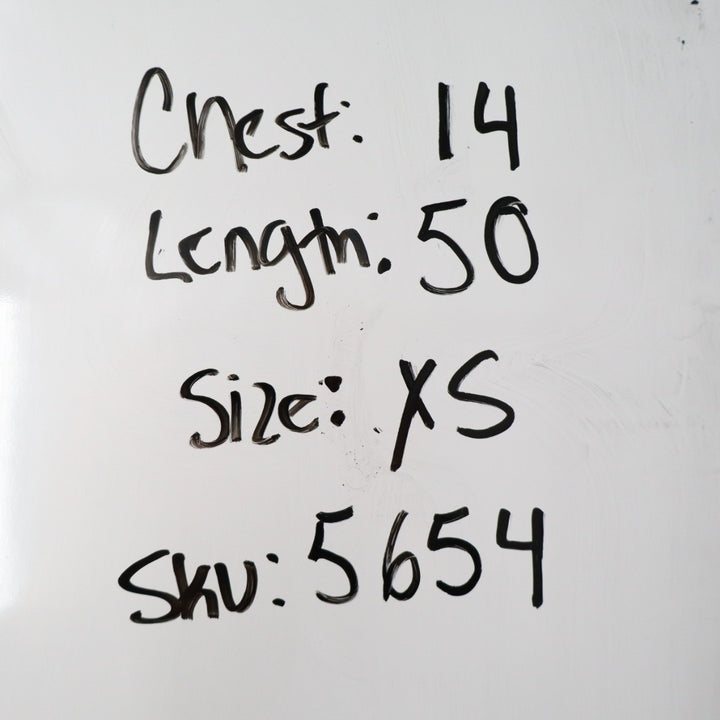 Chest: 14
Length: 50
Size: XS
Sku: 5654